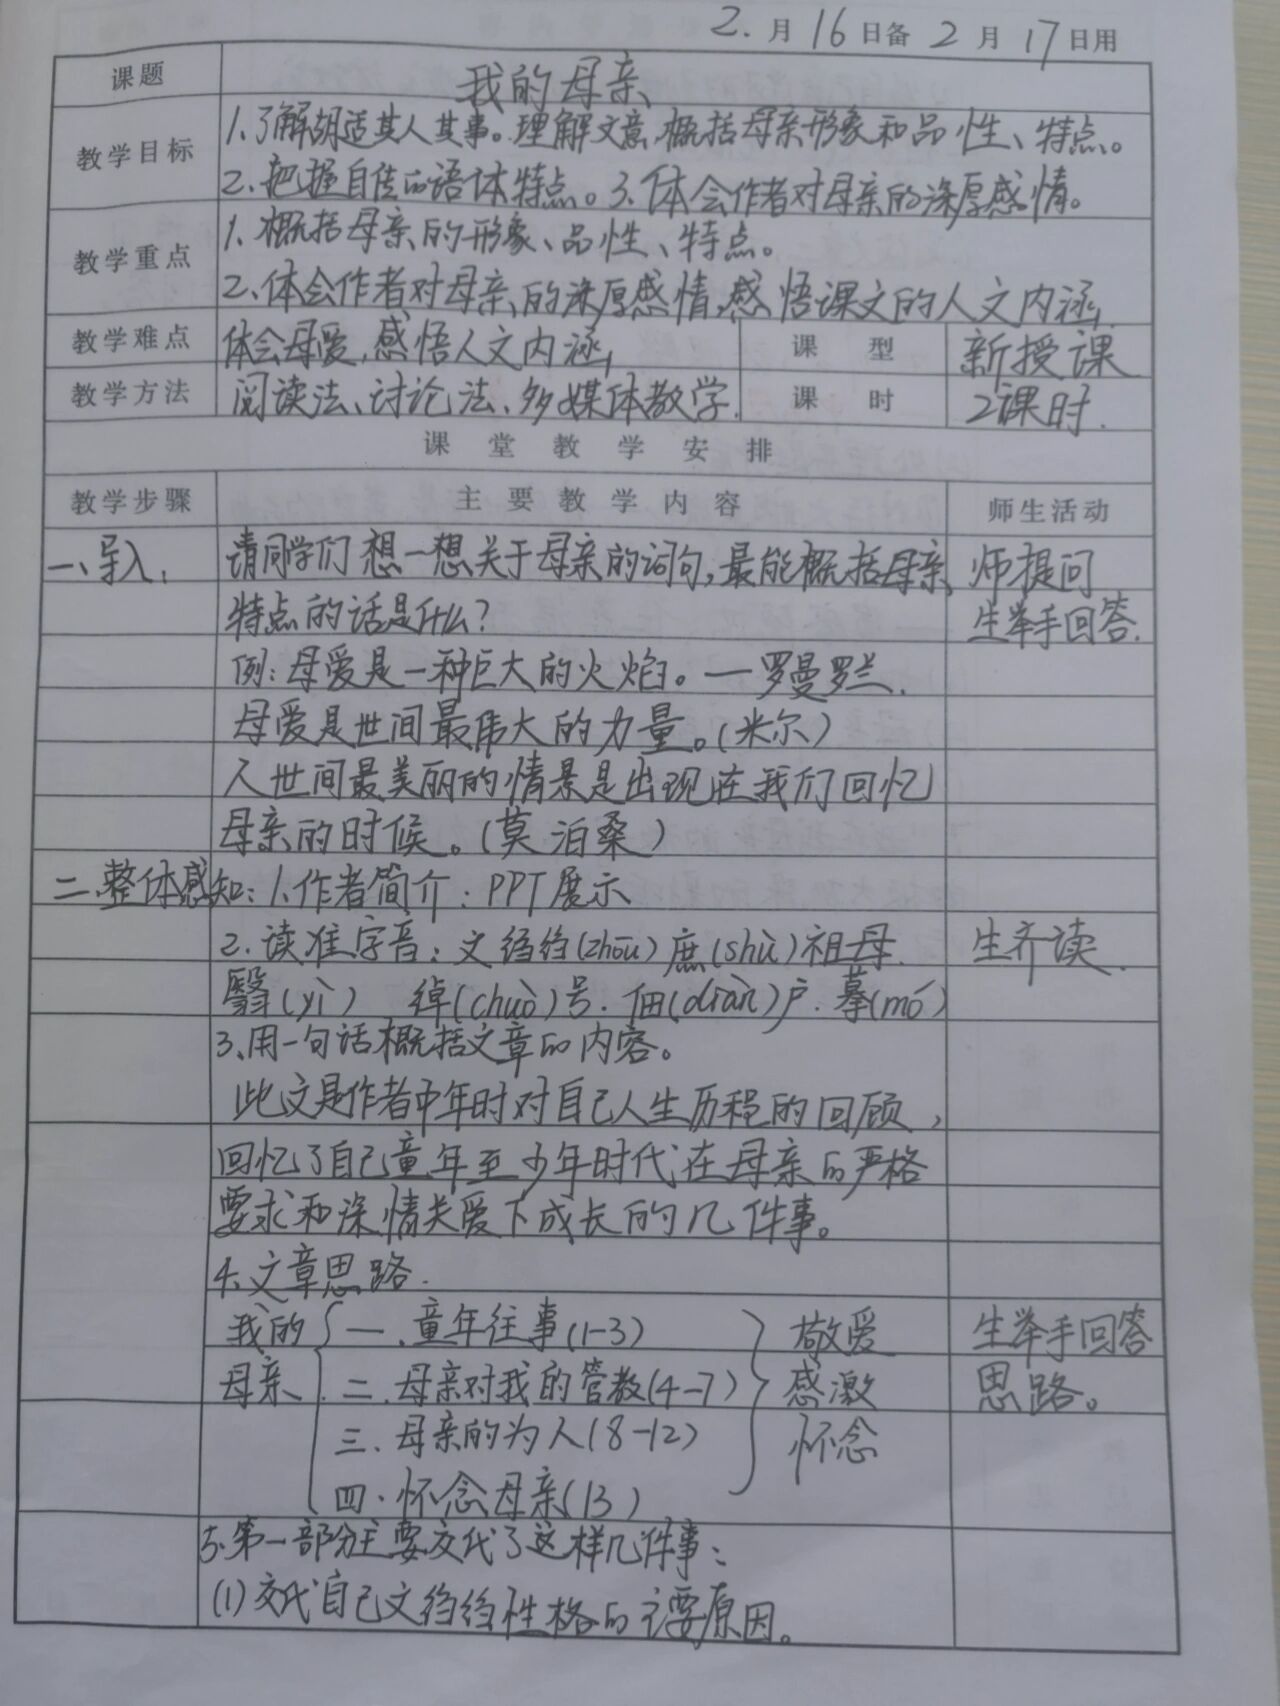 2.月16日备2月17日用
课题 我的母亲
教学目标 1、了解胡适其人其事。理解文意,概括母亲形象和品性、特点。
2、把握自传的语体特点。3、体会作者对母亲的深厚感情。
教学重点 1、概括母亲的形象、品性、特点。
2、体会作者对母亲的深厚感情,感悟课文的人文内涵,
教学难点 体会母爱,感悟人文内涵, 课型 新授课
教学方法 阅读法、讨论法、多媒体教学. 课时 2课时.
课堂教学安排
教学步骤 主要教学内容 师生活动
一、导入: 请同学们想一想关于母亲的词句,最能概括母亲 师提问
特点的话是什么? 生举手回答.
例:母爱是一种巨大的火焰。—罗曼罗兰.
母爱是世间最伟大的力量。(米尔)
人世间最美丽的情景是出现在我们回忆
母亲的时候。(莫泊桑)
二、整体感知:1.作者简介:PPT展示
2.读准字音:文绉绉(zhōu)庶(shù)祖母. 生齐读.
翳(yì) 绰(chuò)号.佃(diàn)户.摹(mó)
3、用一句话概括文章的内容。
此文是作者中年时对自己人生历程的回顾,
回忆了自己童年至少年时代在母亲的严格
要求和深情关爱下成长的几件事。
4、文章思路.
我的 一.童年往事(1-3) 敬爱 生举手回答
母亲 二.母亲对我的管教(4-7) 感激 思路。
三.母亲的为人(8-12) 怀念
四.怀念母亲(13)
5.第一部分主要交代了这样几件事:
(1)交代自己文绉绉性格的主要原因。